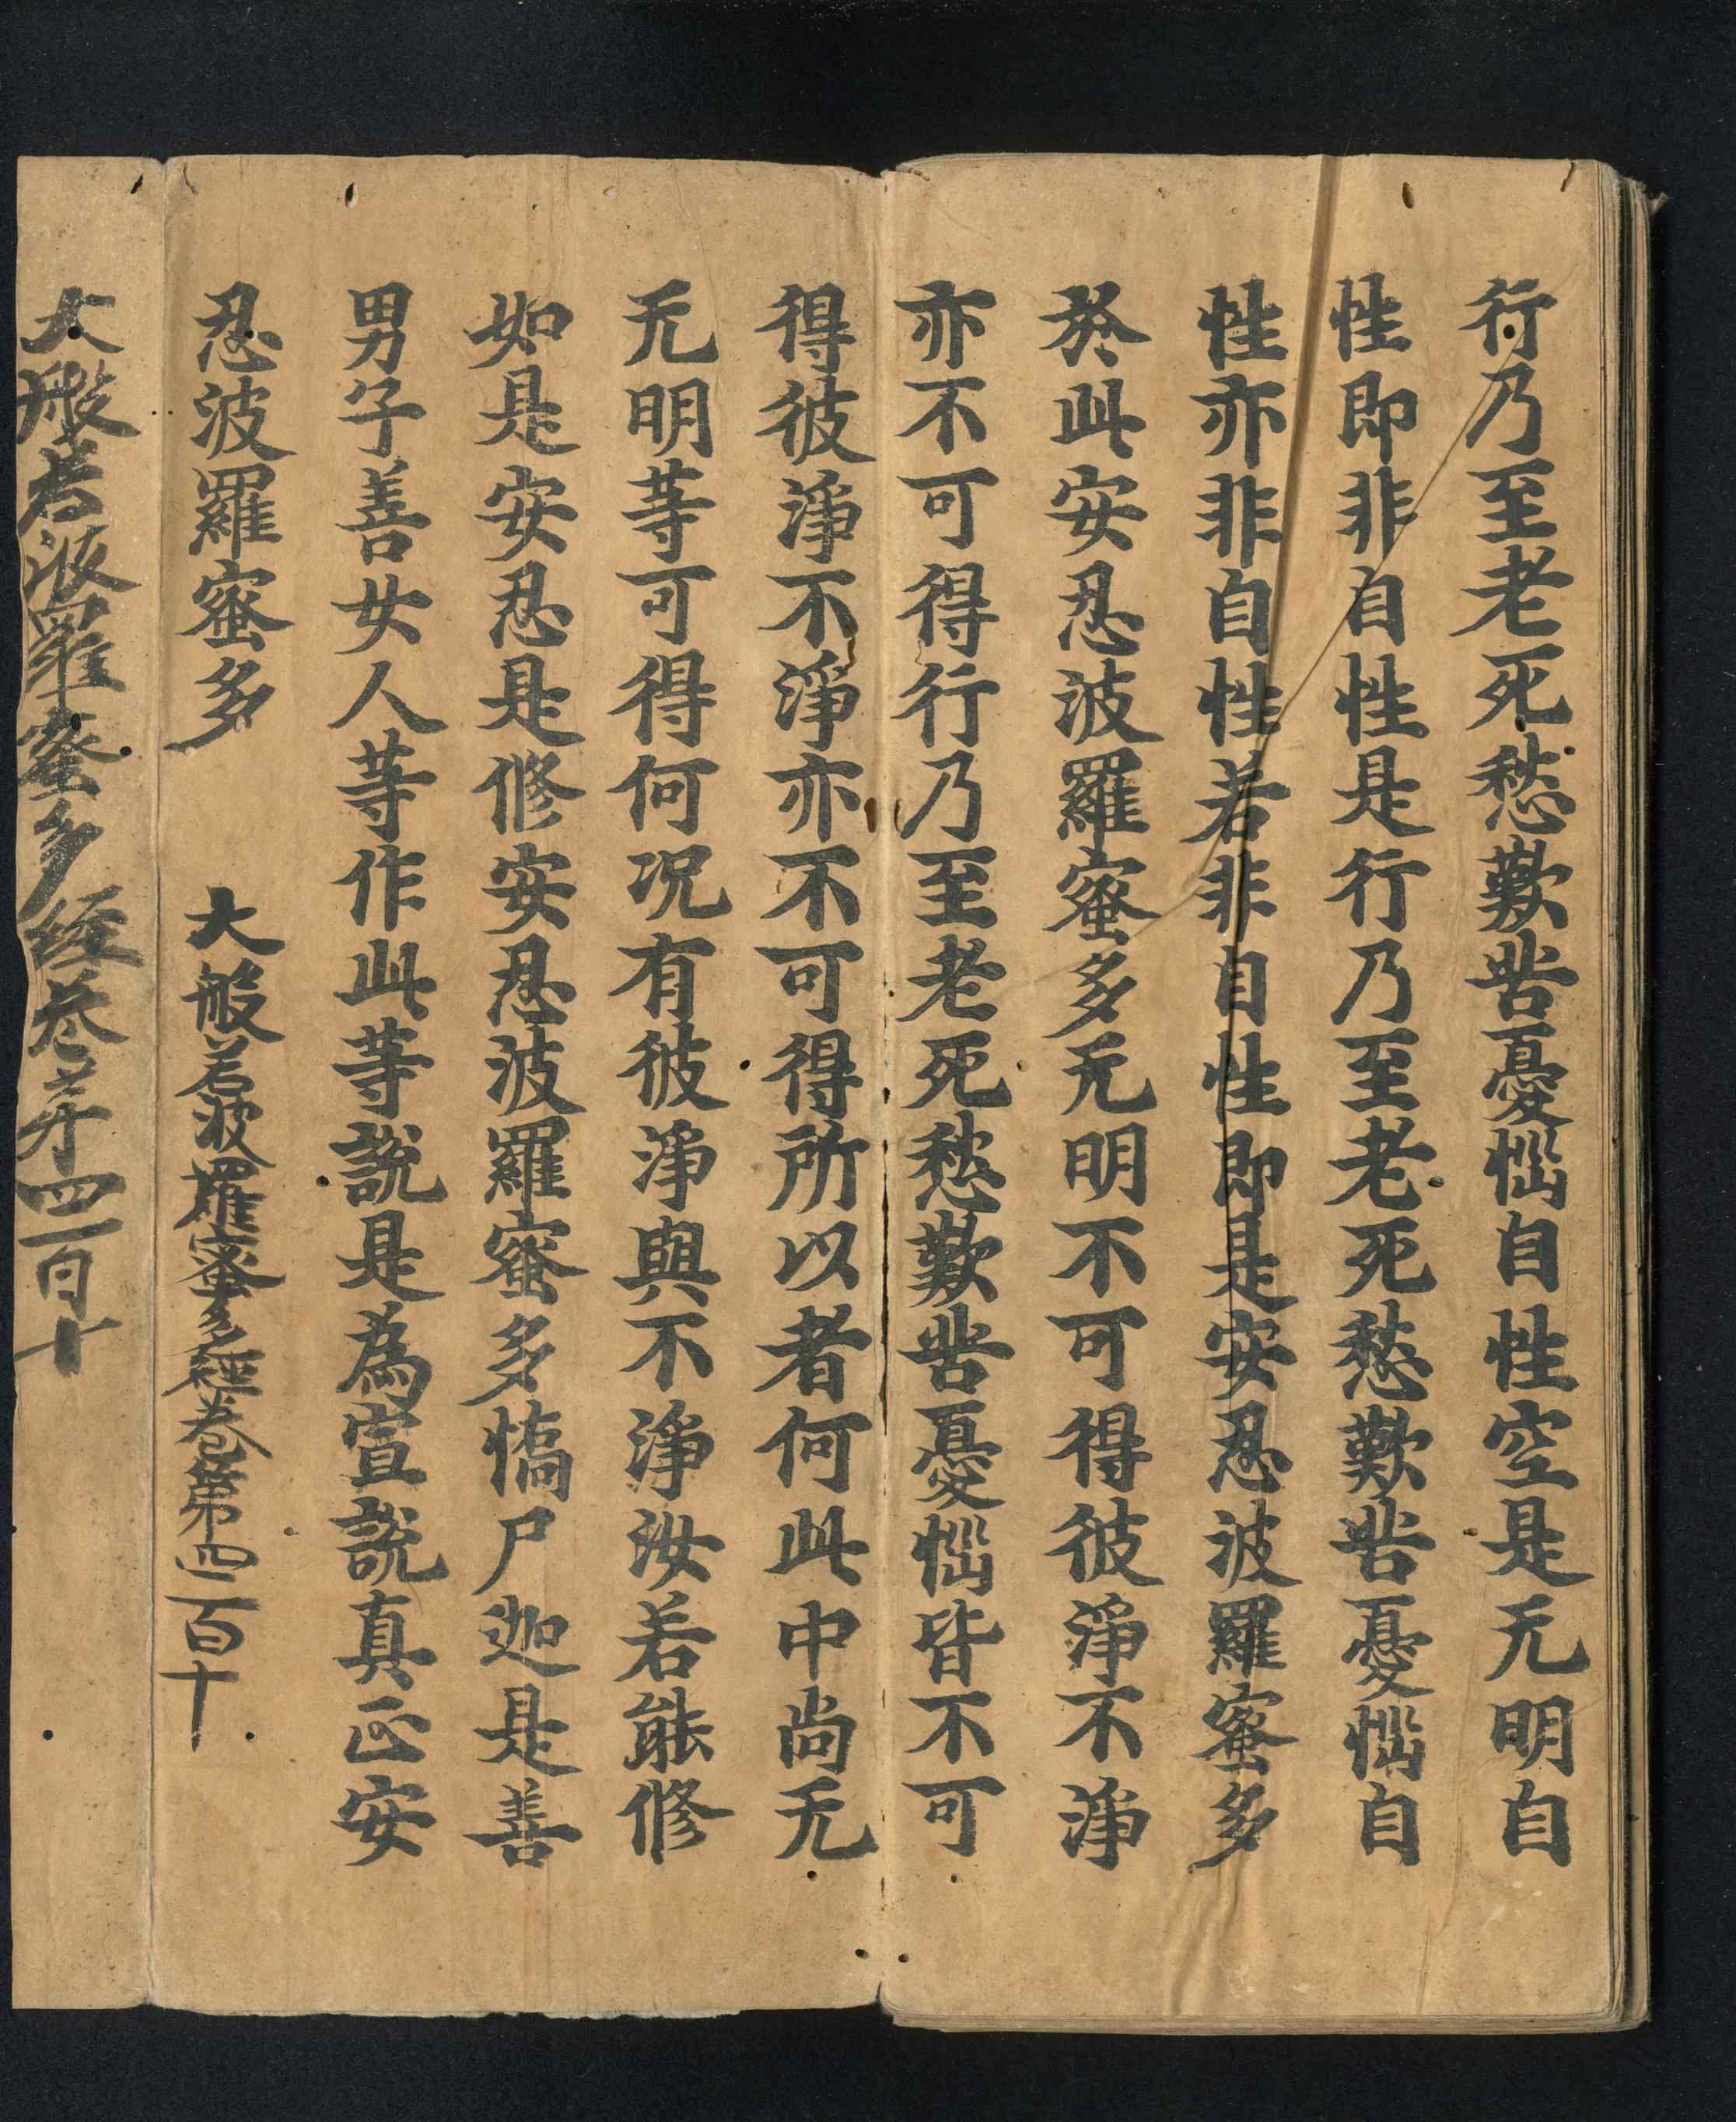 行乃至老死愁歎苦憂惱自性空是无明自
性即非自性是行乃至老死愁歎苦憂惱自
性亦非自性若非自性即是安忍波羅蜜多
於此安忍波羅蜜多无明不可得彼淨不淨
亦不可得行乃至老死愁歎苦憂惱皆不可
得彼淨不淨亦不可得所以者何此中尚无
无明等可得何況有彼淨與不淨汝若能修
如是安忍是修安忍波羅蜜多憍尸迦是善
男子善女人等作此等說是為宣說真正安
忍波羅蜜多
大般若波羅蜜多經卷第四百十
大般若波羅蜜多經卷第四百十